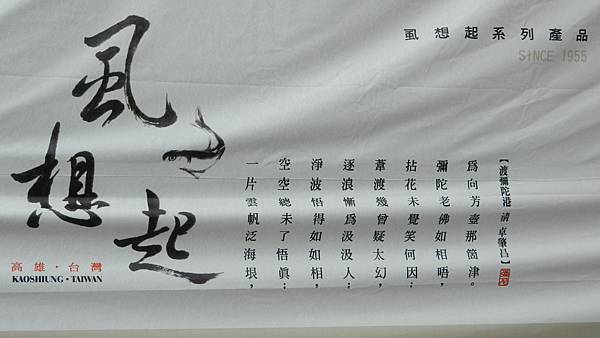 虱想起
高雄・台灣
KAOSHIUNG・TAIWAN
虱想起系列產品
SINCE 1955
一片雲帆泛海垠，
空空總未了悟眞：
淨波悟得如如相，
逐浪慚爲汲汲人：
葦渡幾曾疑太幻，
拈花未覺笑何因：
彌陀老佛如相唔，
爲向芳壺那箇津。
【渡彌陀港 清 卓肇昌】